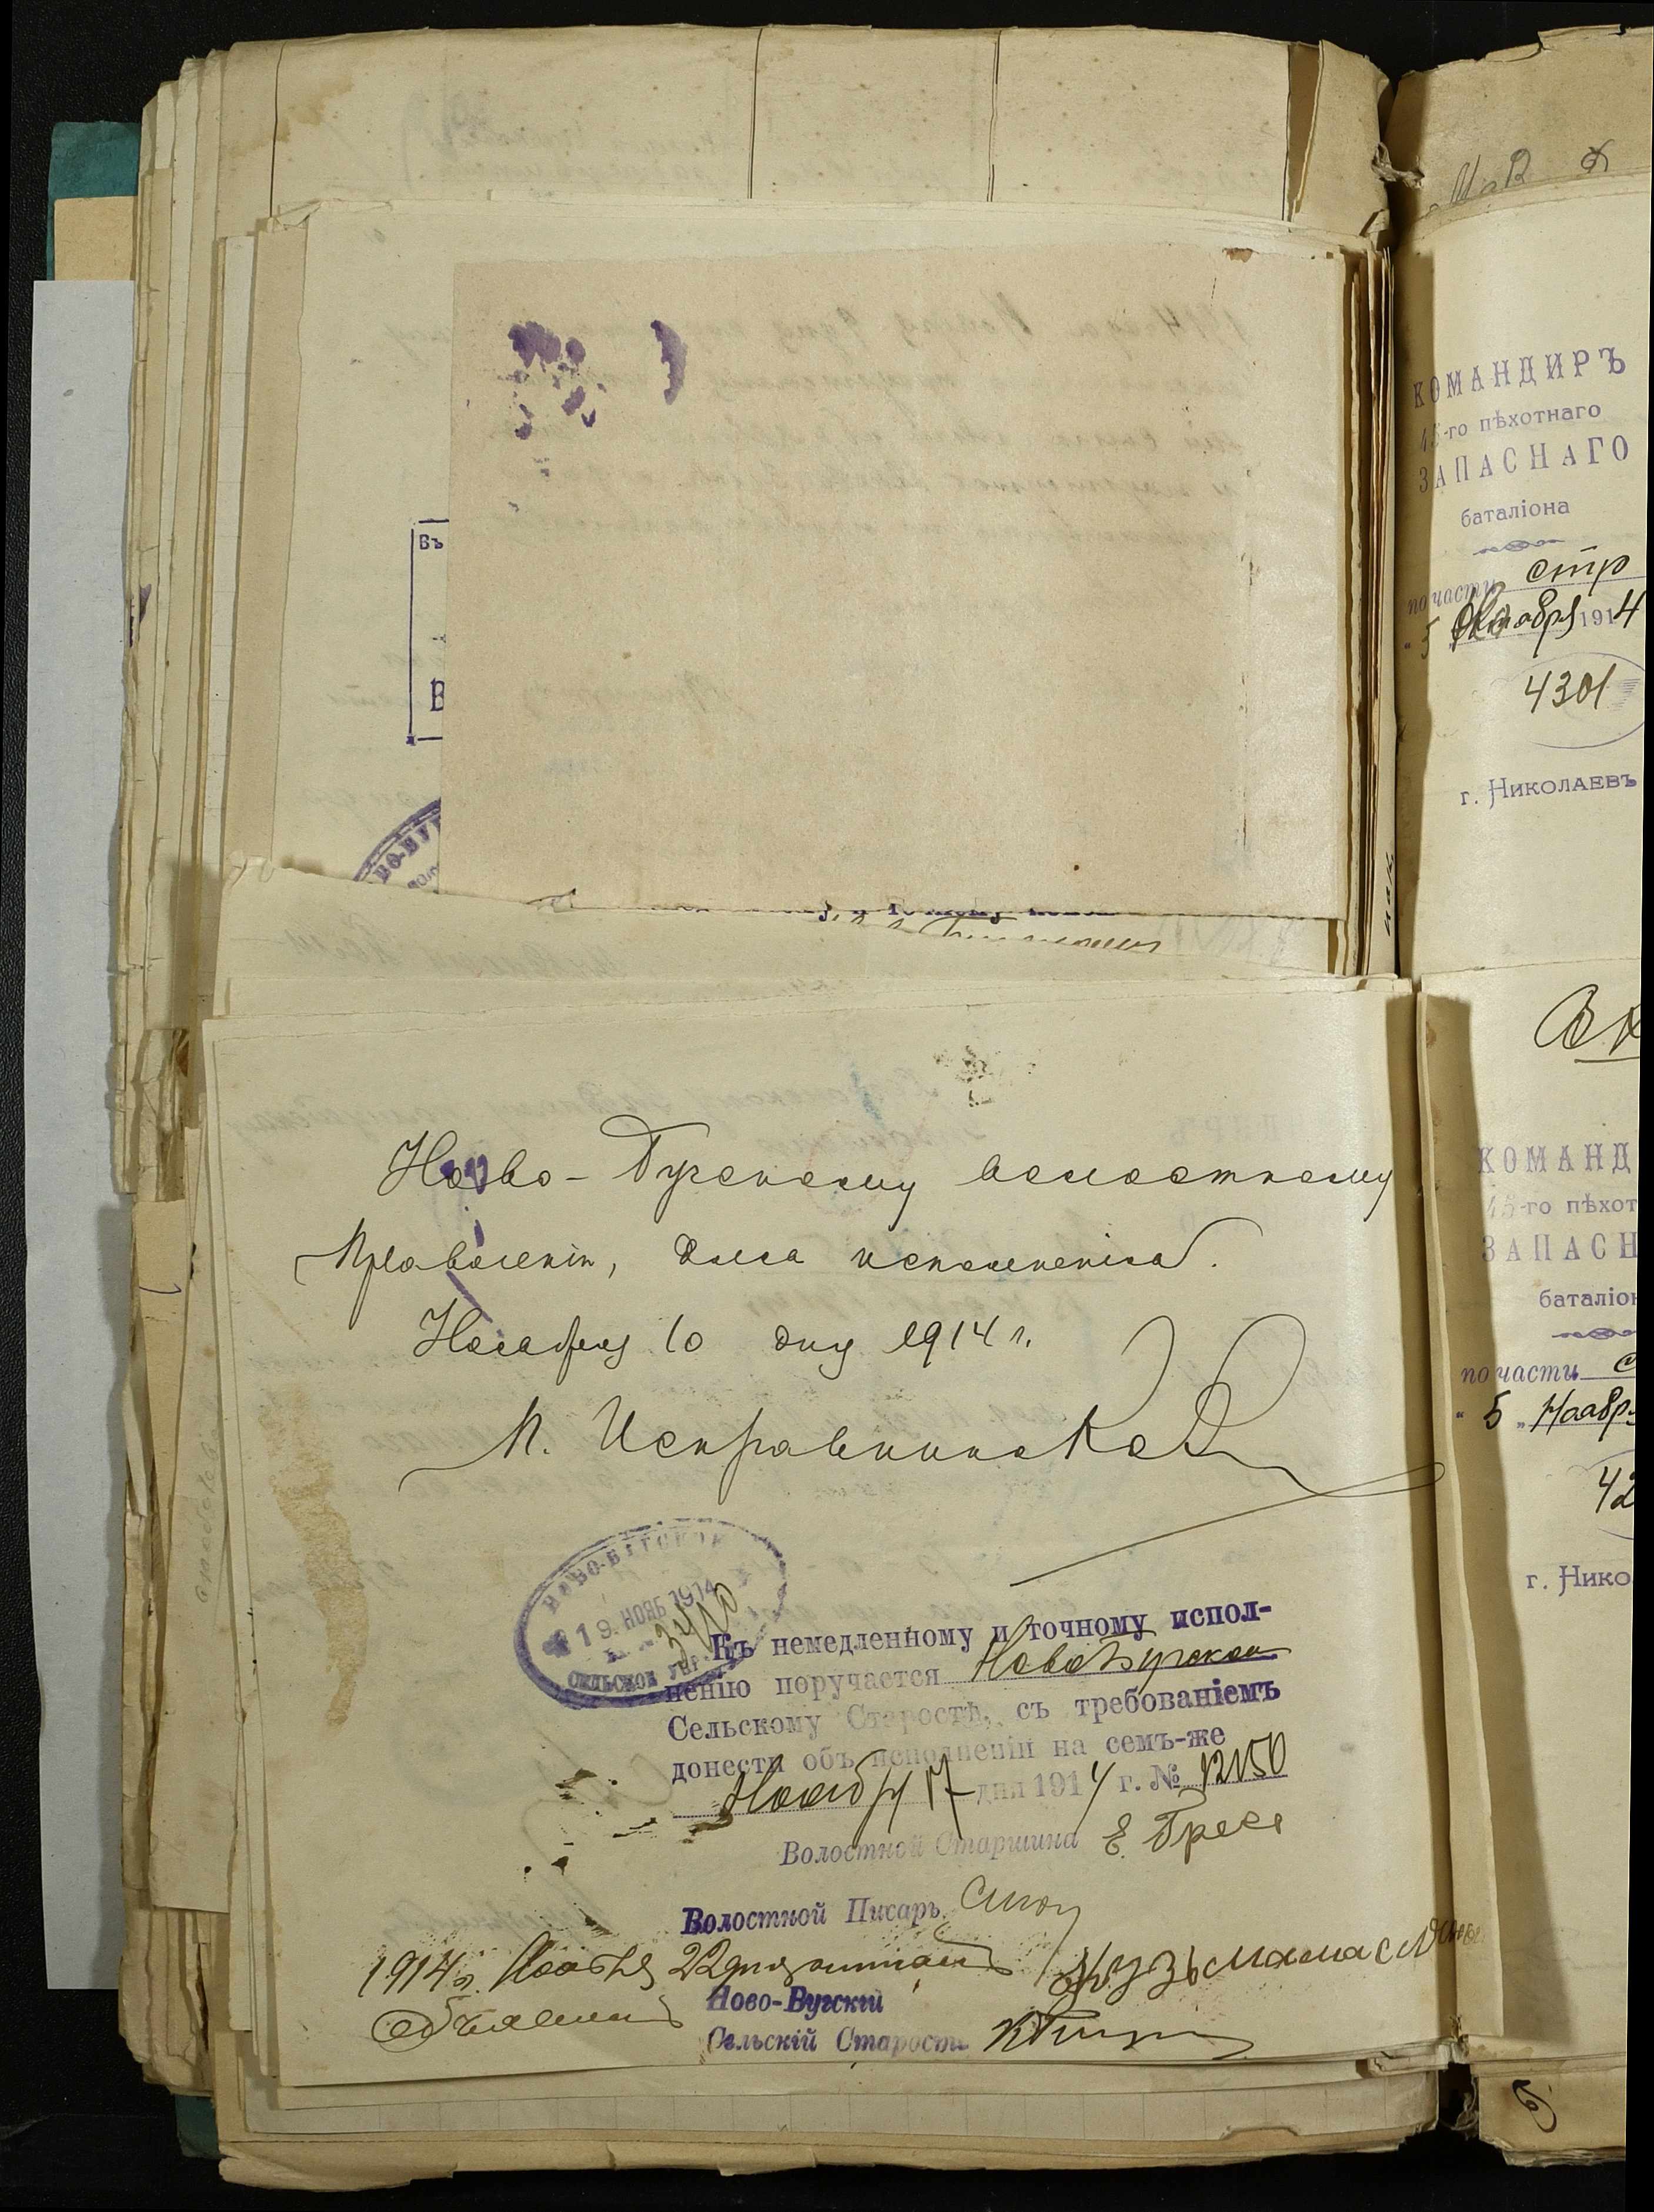 Въ
В
Ново-Бугскому волостному
Правленію, для исполненія.
Ноября 10 дня 1914 г.
П. Исправника
НОВО-БУГСКОЕ
19. НОЯБ 1914
3420
СЕЛЬСКОЕ УПР.
Къ немедленному и точному испол-
ненію поручается Новобугском
Сельскому Старостѣ, съ требованіемъ
донести объ исполненіи на семъ-же
Ноября 17 дня 1914 г. № 12150
Волостной Старшина Е.
Волостной Писарь
1914 г. Ноября 22 дня читалъ
Объявилъ
Ново-Бугскій
Сельскій Староста
КОМАНДИРЪ
45-го пѣхотнаго
ЗАПАСНАГО
баталіона
по части стр
" 5 " Ноября 1914
4301
г. НИКОЛАЕВЪ
КОМАНД
45-го пѣхот
ЗАПАСН
баталіон
по части с
" 5 " Ноябр
42
г. Нико